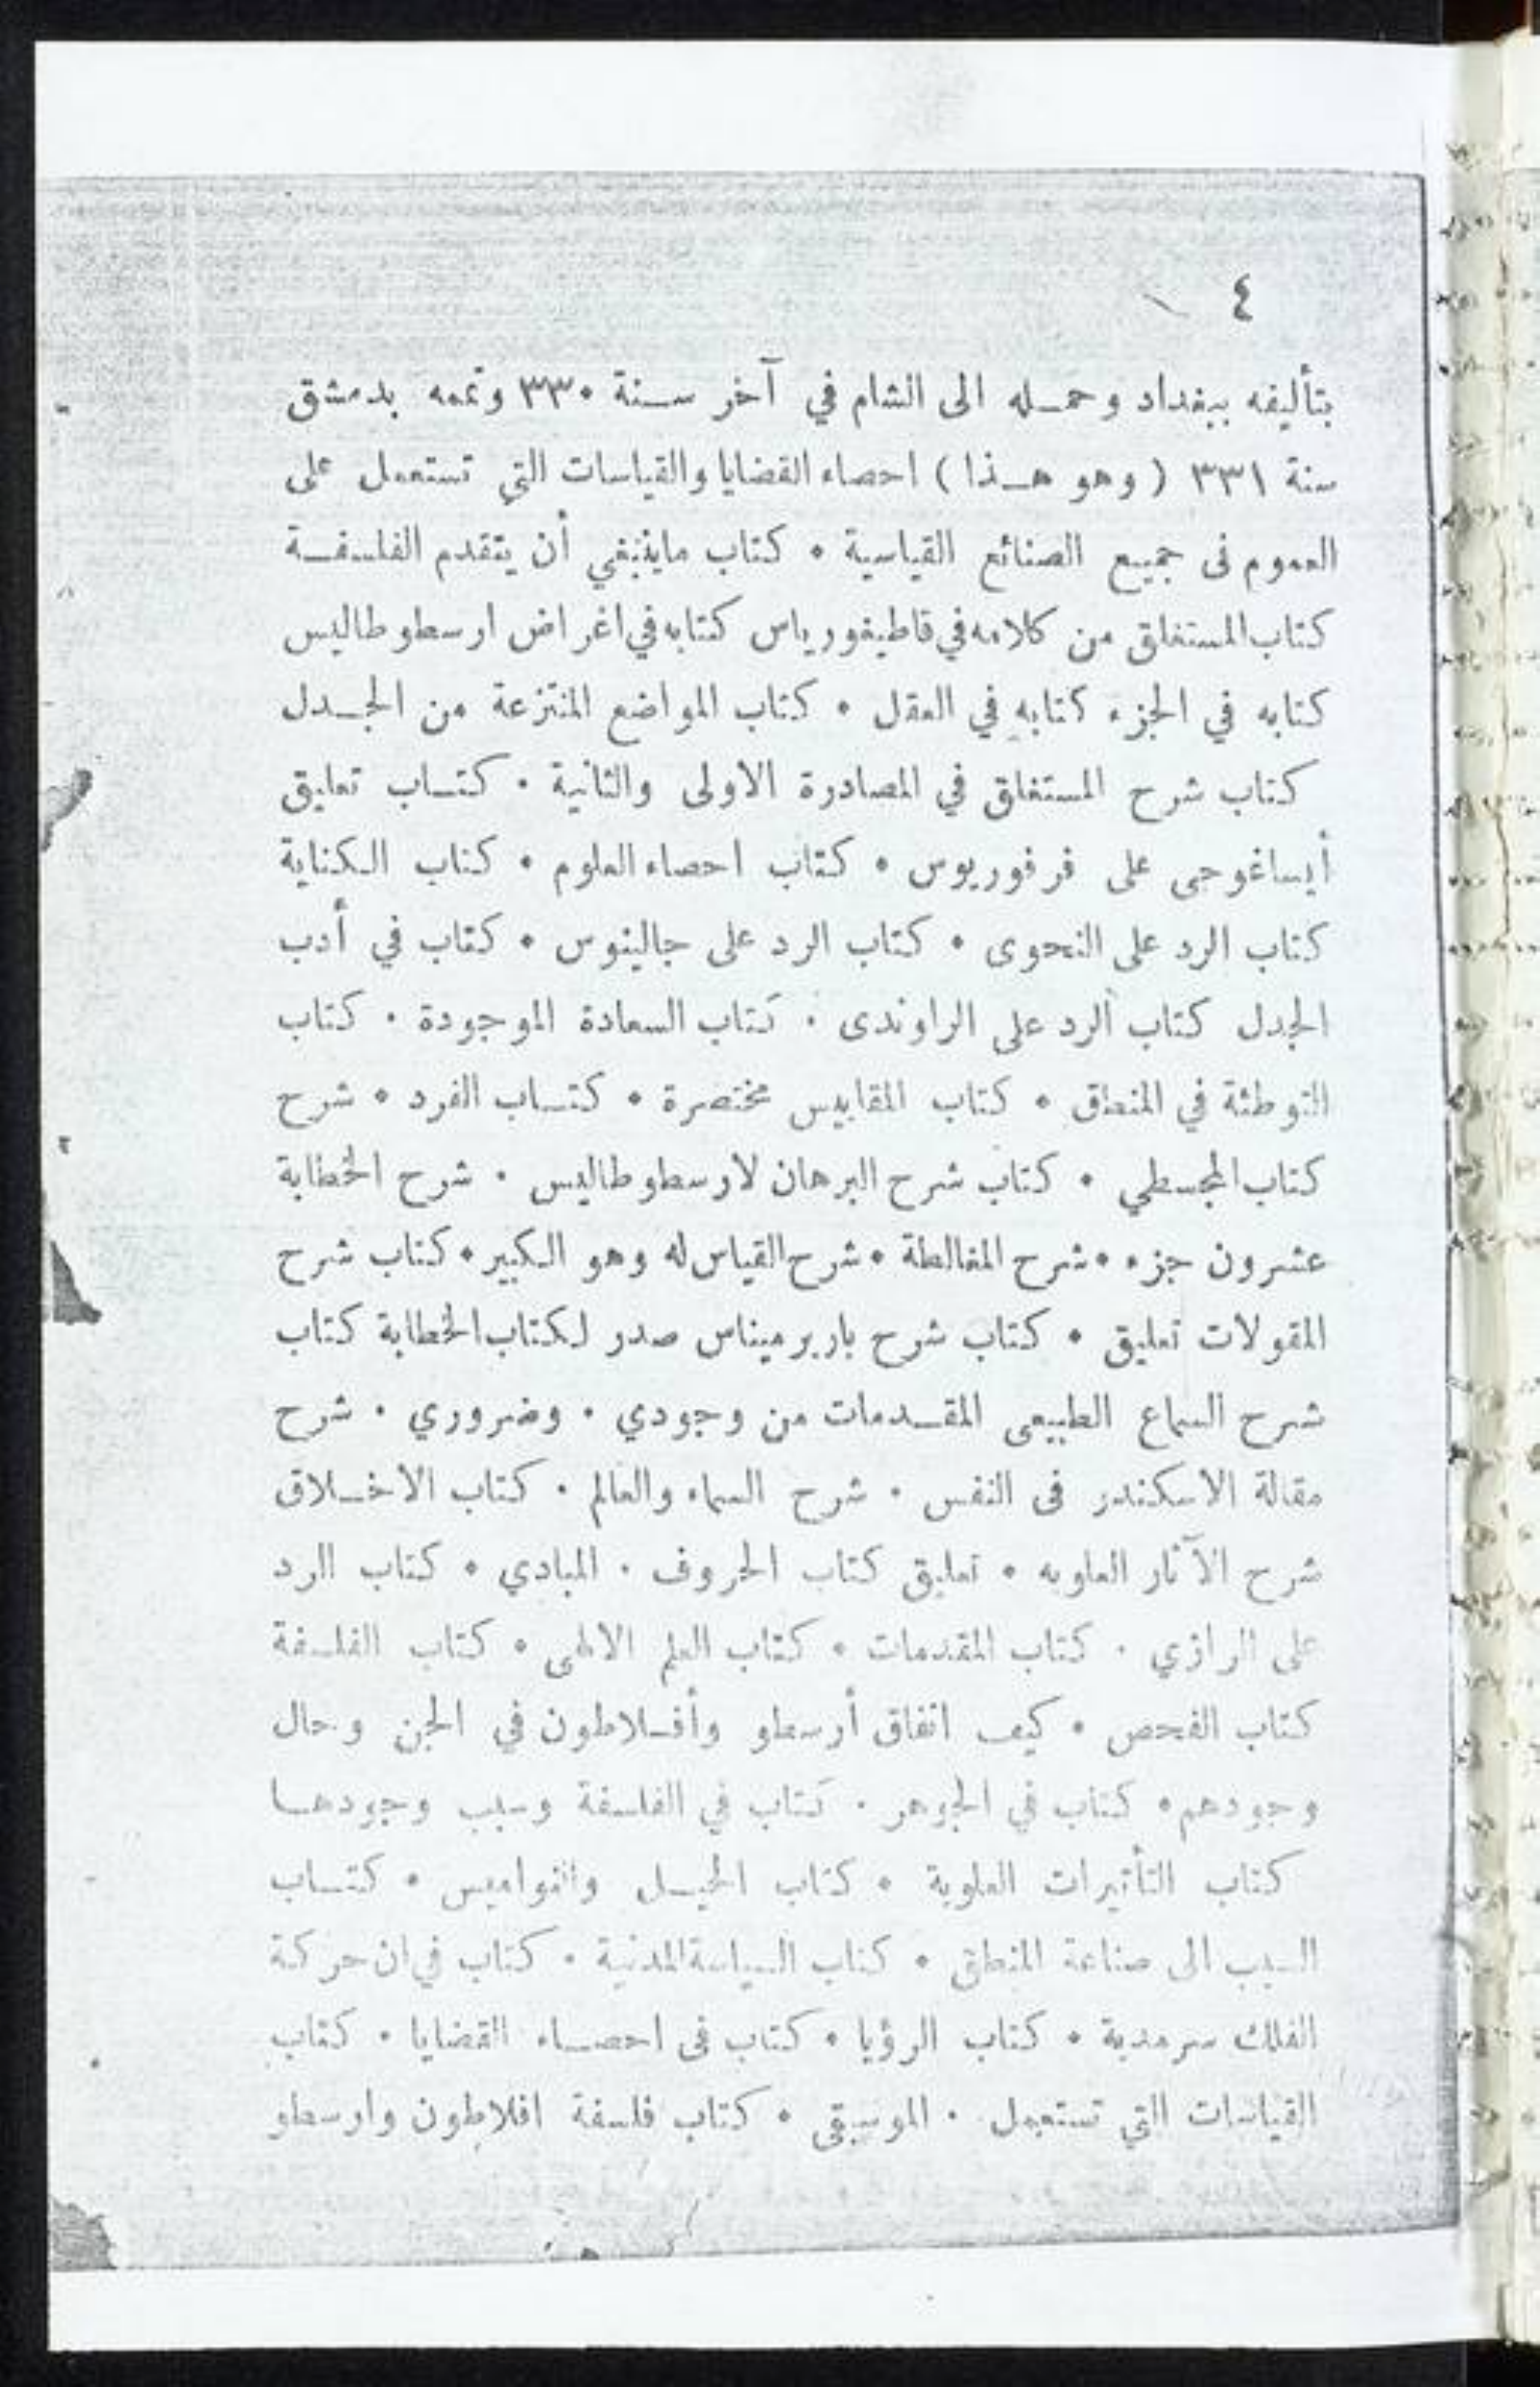 ٤
بتأليفه ببغداد وحمله الى الشام في آخر سنة ٣٣٠ وتممه بدمشق
سنة ٣٣١ ( وهو هذا ) احصاء القضايا والقياسات التي تستعمل على
العموم فى جميع الصنائع القياسية ٠ كتاب ماينبغي أن يتقدم الفلسفة
كتاب المستغلق من كلامه في قاطيغورياس كتابه في اغراض ارسطوطاليس
كتابه في الجزء كتابه في العقل ٠ كتاب المواضع المنتزعة من الجدل
كتاب شرح المستغلق في المصادرة الاولى والثانية ٠ كتاب تعليق
أيساغوجى على فرفوريوس ٠ كتاب احصاء العلوم ٠ كتاب الكناية
كتاب الرد على النحوى ٠ كتاب الرد على جالينوس ٠ كتاب في أدب
الجدل كتاب الرد على الراوندى ٠ كتاب السعادة الموجودة ٠ كتاب
التوطئة في المنطق ٠ كتاب المقاييس مختصرة ٠ كتاب الفرد ٠ شرح
كتاب المجسطي ٠ كتاب شرح البرهان لارسطوطاليس ٠ شرح الخطابة
عشرون جزء ٠ شرح المغالطة ٠ شرح القياس له وهو الكبير ٠ كتاب شرح
المقولات تعليق ٠ كتاب شرح باريرميناس صدر لكتاب الخطابة كتاب
شرح السماع الطبيعى المقدمات من وجودي ٠ وضروري ٠ شرح
مقالة الاسكندر فى النفس ٠ شرح السماء والعالم ٠ كتاب الاخلاق
شرح الآثار العلويه ٠ تعليق كتاب الحروف ٠ المبادي ٠ كتاب الرد
على الرازي ٠ كتاب المقدمات ٠ كتاب العلم الالهى ٠ كتاب الفلسفة
كتاب الفحص ٠ كيف اتفاق أرسطو وأفلاطون في الجن وحال
وجودهم ٠ كتاب في الجوهر ٠ كتاب في الفلسفة وسبب وجودها
كتاب التأثيرات العلوية ٠ كتاب الحيل والنواميس ٠ كتاب
السبب الى صناعة المنطق ٠ كتاب السياسة المدنية ٠ كتاب في ان حركة
الفلك سرمدية ٠ كتاب الرؤيا ٠ كتاب فى احصاء القضايا ٠ كتاب
القياسات التي تستعمل ٠ الموسيقى ٠ كتاب فلسفة افلاطون وارسطو